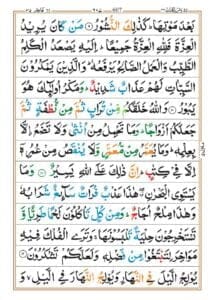 بَعْدَ مَوْتِهَا ؕ كَذٰلِكَ النُّشُوْرُ ۞ مَنْ كَانَ يُرِيْدُ
الْعِزَّةَ فَلِلّٰهِ الْعِزَّةُ جَمِيْعًا ؕ اِلَيْهِ يَصْعَدُ الْكَلِمُ
الطَّيِّبُ وَالْعَمَلُ الصَّالِحُ يَرْفَعُهٗ ؕ وَالَّذِيْنَ يَمْكُرُوْنَ
السَّيِّاٰتِ لَهُمْ عَذَابٌ شَدِيْدٌ ؕ وَمَكْرُ اُولٰٓئِكَ هُوَ
يَبُوْرُ ۞ وَاللّٰهُ خَلَقَكُمْ مِّنْ تُرَابٍ ثُمَّ مِنْ نُّطْفَةٍ ثُمَّ
جَعَلَكُمْ اَزْوَاجًا ؕ وَمَا تَحْمِلُ مِنْ اُنْثٰى وَلَا تَضَعُ اِلَّا
بِعِلْمِهٖ ؕ وَمَا يُعَمَّرُ مِنْ مُّعَمَّرٍ وَّلَا يُنْقَصُ مِنْ عُمُرِهٖٓ
اِلَّا فِيْ كِتٰبٍ ؕ اِنَّ ذٰلِكَ عَلَى اللّٰهِ يَسِيْرٌ ۞ وَمَا
يَسْتَوِي الْبَحْرٰنِ ۖ هٰذَا عَذْبٌ فُرَاتٌ سَآئِغٌ شَرَابُهٗ
وَهٰذَا مِلْحٌ اُجَاجٌ ؕ وَمِنْ كُلٍّ تَاْكُلُوْنَ لَحْمًا طَرِيًّا وَّ
تَسْتَخْرِجُوْنَ حِلْيَةً تَلْبَسُوْنَهَا ۚ وَتَرَى الْفُلْكَ فِيْهِ
مَوَاخِرَ لِتَبْتَغُوْا مِنْ فَضْلِهٖ وَلَعَلَّكُمْ تَشْكُرُوْنَ ۞
يُوْلِجُ الَّيْلَ فِي النَّهَارِ وَيُوْلِجُ النَّهَارَ فِي الَّيْلِ ۙ وَ